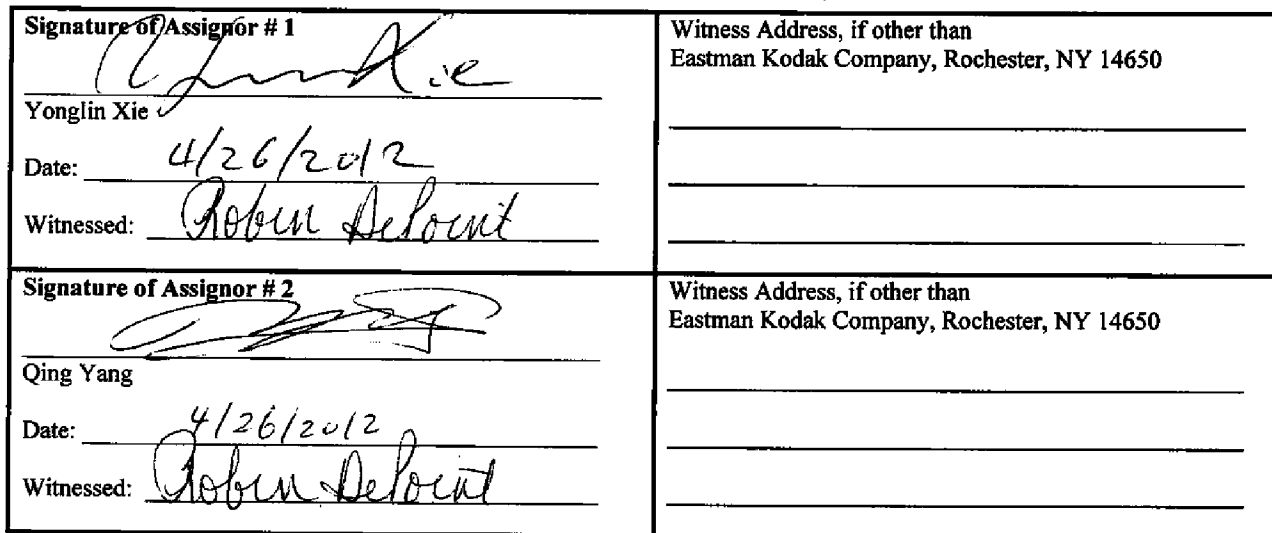 Signature of Assignor # 1
Yonglin Xie
Date: 4/26/2012
Witnessed: Robin DePoint
Witness Address, if other than
Eastman Kodak Company, Rochester, NY 14650
Signature of Assignor # 2
Qing Yang
Date: 4/26/2012
Witnessed: Robin DePoint
Witness Address, if other than
Eastman Kodak Company, Rochester, NY 14650